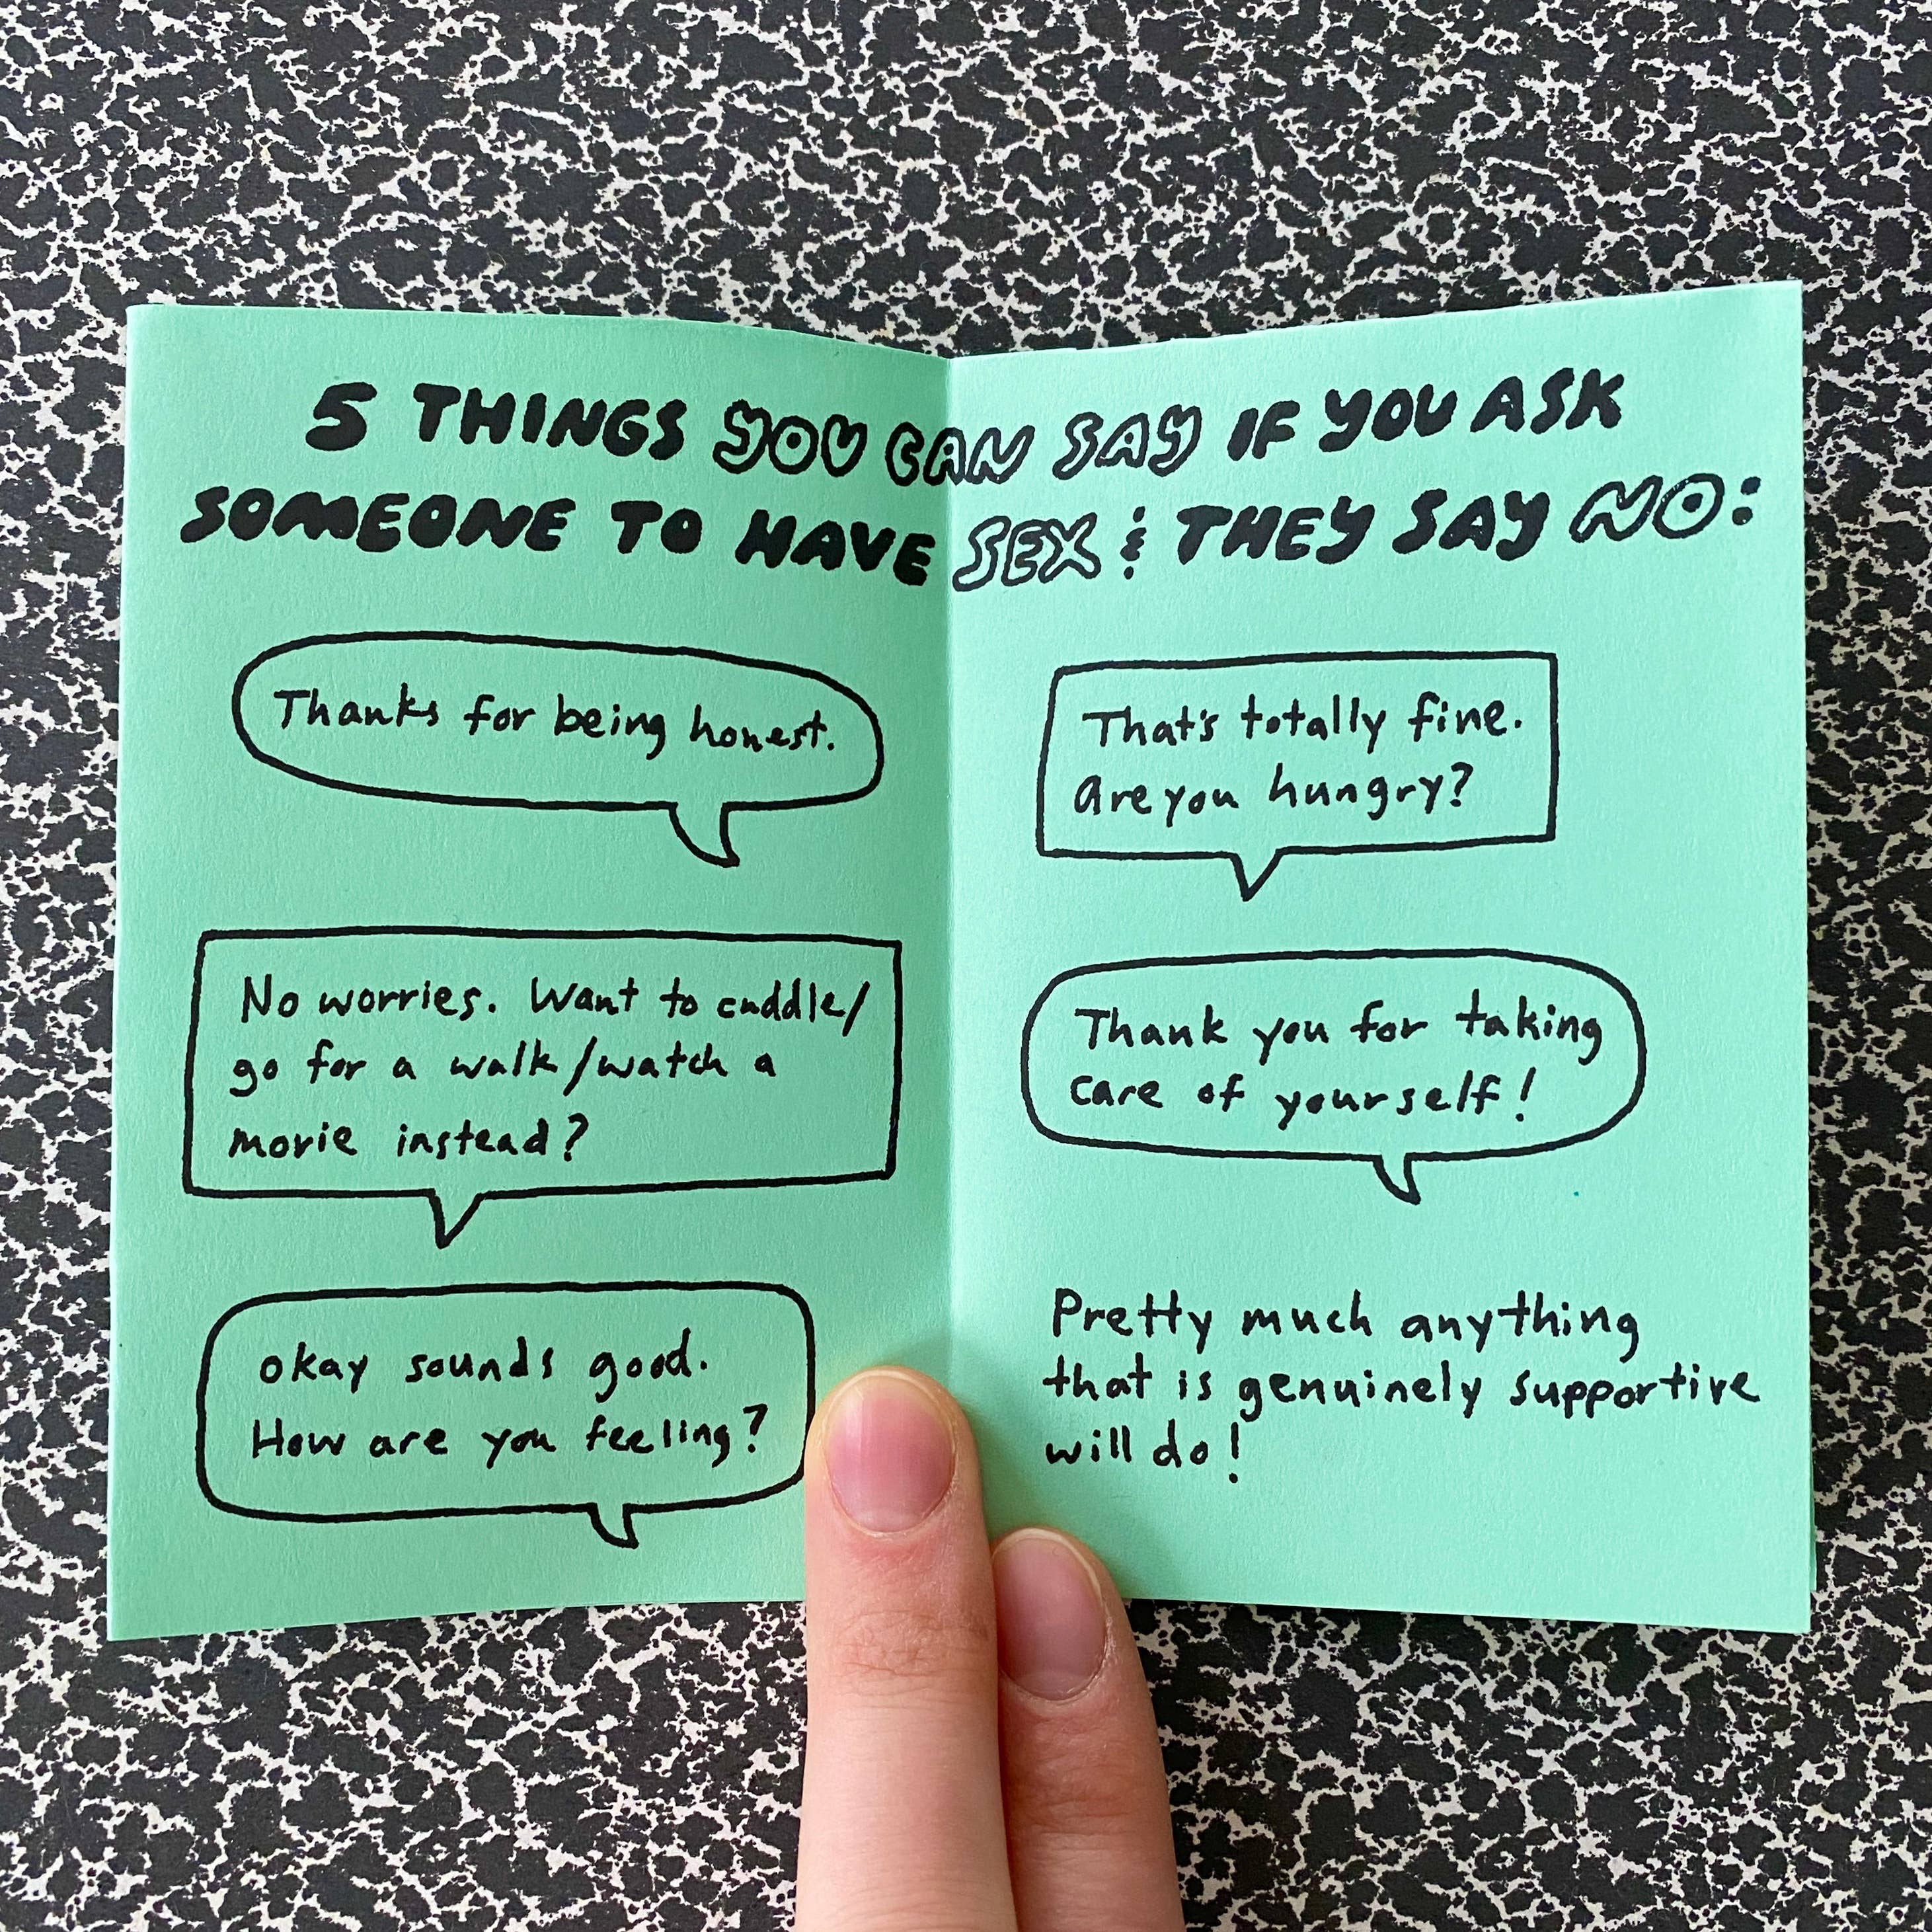 5 THINGS YOU CAN SAY IF YOU ASK
SOMEONE TO HAVE SEX & THEY SAY NO:
Thanks for being honest.
No worries. Want to cuddle/
go for a walk/watch a
movie instead?
okay sounds good.
How are you feeling?
That's totally fine.
Are you hungry?
Thank you for taking
care of yourself!
Pretty much anything
that is genuinely supportive
will do!